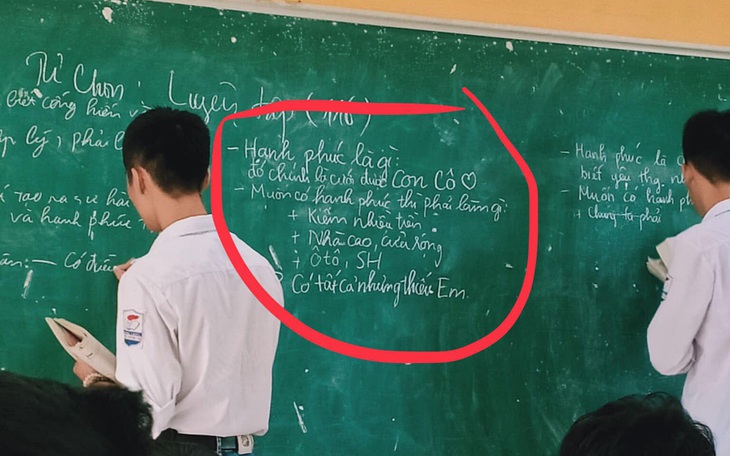 Tự Chọn: Luyện tập (
biết cống hiến và
lý, phải
tạo ra sự hà
và hạnh phúc
Có điều
- Hạnh phúc là gì:
đó chính là cưới được Con Cô ♡
- Muốn có hạnh phúc thì phải làm gì:
+ Kiếm nhiều tiền
+ Nhà cao, cửa rộng
+ Ô tô, SH
Có tất cả nhưng thiếu Em.
- Hạnh phúc là
biết yêu thg
- Muốn có hạnh ph
+ Chúng ta phải